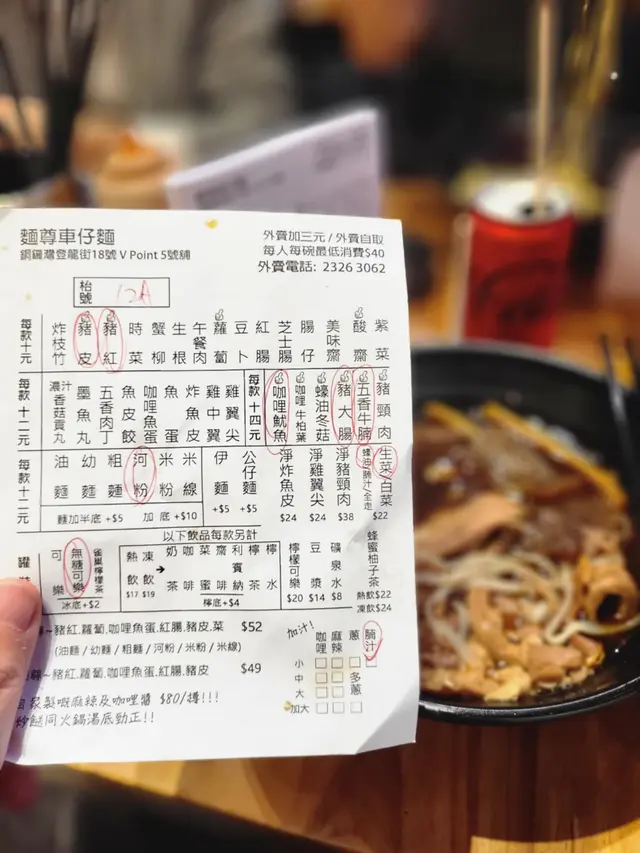 麵尊車仔麵
銅鑼灣登龍街18號 V Point 5號舖
外賣加三元 / 外賣自取
每人每碗最低消費$40
外賣電話: 2326 3062
枱號 12A
每款十元
炸枝竹
豬皮
豬紅
時菜
蟹柳
生根
午餐肉
蘿蔔
豆卜
紅腸
芝士腸
腸仔
美味齋
酸齋
紫菜
每款十二元
濃汁香菇貢丸
墨魚丸
五香肉丁
魚皮餃
咖哩魚蛋
魚皮
炸中翼
雞翼尖
每款十四元
咖哩魷魚
咖哩牛柏葉
蠔油冬菇
豬大腸
五香牛腩
豬頸肉
每款十二元
油麵
幼麵
粗麵
河粉
米粉
米線
麵加半底 +$5
加底 +$10
伊麵
公仔麵
+$5 +$5
淨炸魚皮 $24
淨雞翼尖 $24
淨豬頸肉 $38
生菜白菜 $22
蠔油腩汁全走
以下飲品每款另計
罐裝
可樂
無糖可樂
雀巢檸檬茶
冰底+$2
熱飲 $17
凍飲 $19
奶茶
咖啡
菜蜜
齋啡
利賓納
檸茶
檸水
檸底+$4
檸檬可樂 $20
豆漿 $14
礦泉水 $8
蜂蜜柚子茶
熱飲$22
凍飲$24
~豬紅.蘿蔔.咖哩魚蛋.紅腸.豬皮.菜 $52
(油麵 / 幼麵 / 粗麵 / 河粉 / 米粉 / 米線)
~豬紅.蘿蔔.咖哩魚蛋.紅腸.豬皮 $49
家製嘅麻辣及咖哩醬 $80/樽!!!
炒餸同火鍋湯底勁正!!
加汁!
咖哩 麻辣 蔥 腩汁
小
中
大
加大
多蔥